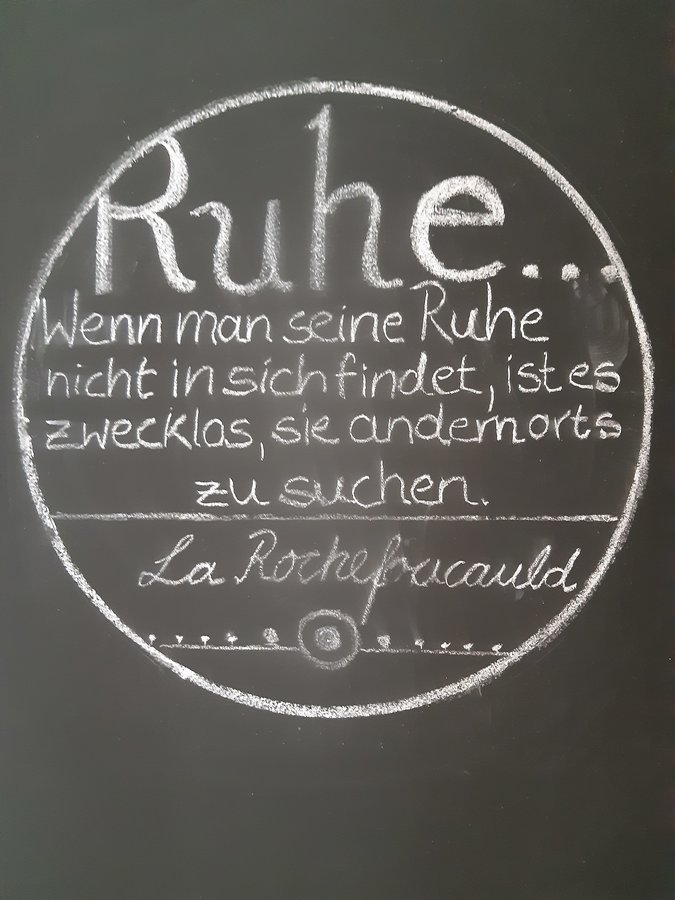 Ruhe...
Wenn man seine Ruhe
nicht in sich findet, ist es
zwecklos, sie andernorts
zu suchen.
La Rochefoucauld